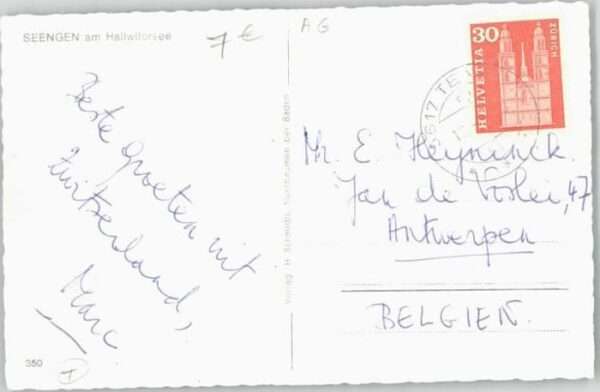 SEENGEN am Hallwilersee
7 €
AG
Beste groeten uit
Zwitserland,
Marc
350
Verlag H. bei Baden
30
HELVETIA
ZÜRICH
Mr. E. Heyninck.
Jan de 47
Antwerpen
BELGIEN.